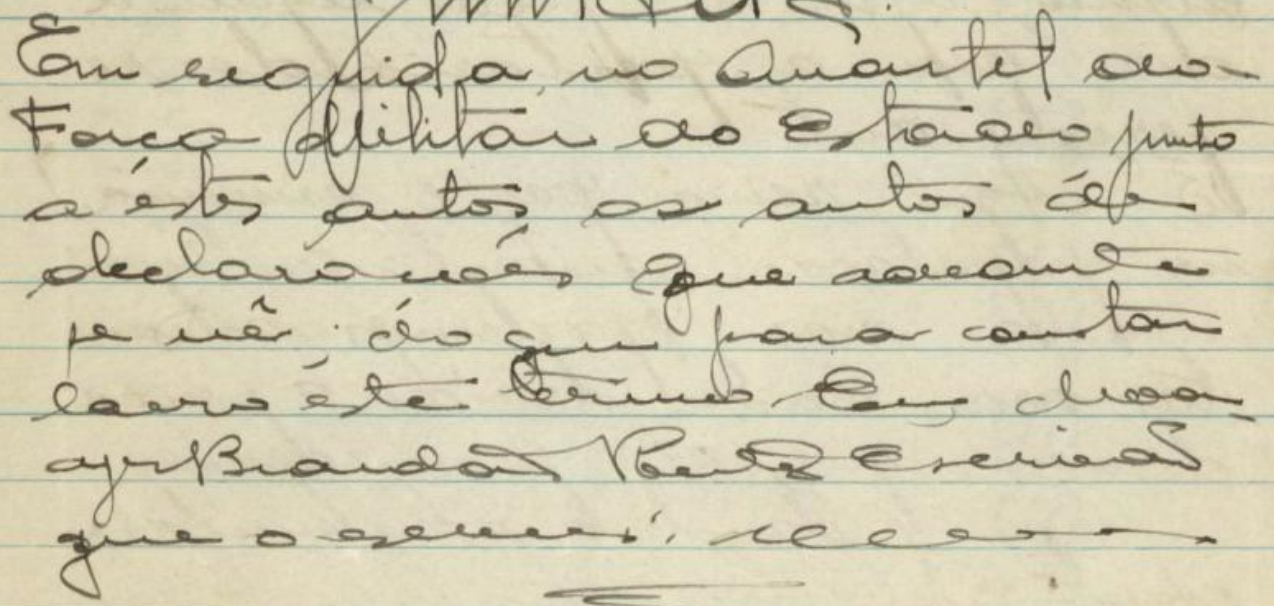 Em seguida no Quartel da
Força Militar do Estado junto
a éstes autos os autos de
declarações que adeante
se vê; do que para constar
lavro éste termo Eu
Brandão Escrivão
que o escrevi.